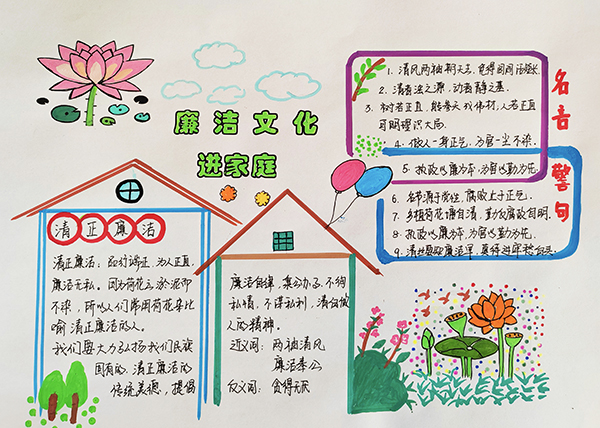 廉洁文化
进家庭
名言
警句
1. 清风两袖朝天去,免得闾阎话短长
2. 清者浊之源,动者静之基
3. 树若正直,能参天成伟材,人若正直
可明理识大局.
4. 做人一身正气,为官一尘不染.
5. 执政以廉为本,为官以勤为先.
6. 名节源于党性,腐败止于正气.
7. 多植荷花塘自清,勤反腐政自明.
8. 执政以廉为本,为官以勤为先.
清正廉洁
清正廉洁,品行端正,为人正直,
廉洁无私,因为荷花出淤泥而
不染,所以人们常用荷花来比
喻清正廉洁的人。
我们要大力弘扬我们民族
固有的,清正廉洁的
传统美德,提倡
廉洁自律,秉公办事,不徇
私情,不谋私利,清白做
人的精神。
近义词:两袖清风
廉洁奉公
反义词:贪得无厌